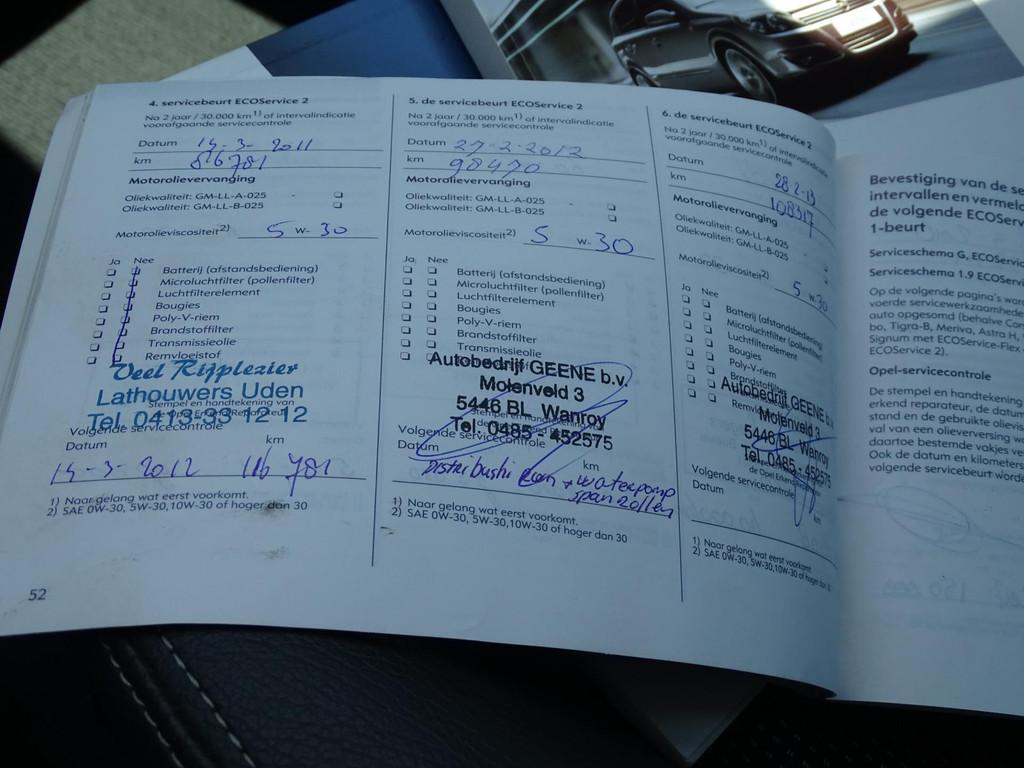 4. servicebeurt ECOService 2
Na 2 jaar / 30.000 km1) of intervalindicatie
voorafgaande servicecontrole
Datum 14-3-2011
km 86781
Motorolievervanging
Oliekwaliteit: GM-LL-A-025
Oliekwaliteit: GM-LL-B-025
Motorolieviscositeit2) 5 w- 30
Ja Nee
Batterij (afstandsbediening)
Microluchtfilter (pollenfilter)
Luchtfilterelement
Bougies
Poly-V-riem
Brandstoffilter
Transmissieolie
Remvloeistof
Veel Rijplezier
Lathouwers Uden
Stempel en handtekening van
Tel. 0413-33 12 12
de Opel Erkend Reparateur
Volgende servicecontrole
Datum km
14-3-2012 116 781
1) Naar gelang wat eerst voorkomt.
2) SAE 0W-30, 5W-30,10W-30 of hoger dan 30
52
5. de servicebeurt ECOService 2
Na 2 jaar / 30.000 km1) of intervalindicatie
voorafgaande servicecontrole
Datum 27-2-2012
km 98470
Motorolievervanging
Oliekwaliteit: GM-LL-A-025
Oliekwaliteit: GM-LL-B-025
Motorolieviscositeit2) 5 w- 30
Ja Nee
Batterij (afstandsbediening)
Microluchtfilter (pollenfilter)
Luchtfilterelement
Bougies
Poly-V-riem
Brandstoffilter
Transmissieolie
Autobedrijf GEENE b.v.
Molenveld 3
5446 BL Wanroy
Tel. 0485 - 452575
Volgende servicecontrole
Datum km
Distribushi riem + waterpomp
spanrollen
1) Naar gelang wat eerst voorkomt.
2) SAE 0W-30, 5W-30,10W-30 of hoger dan 30
6. de servicebeurt ECOService 2
Na 2 jaar / 30.000 km1) of intervalindicatie
voorafgaande servicecontrole
Datum 28-2-13
km 108317
Motorolievervanging
Oliekwaliteit: GM-LL-A-025
Oliekwaliteit: GM-LL-B-025
Motorolieviscositeit2) 5 w- 30
Ja Nee
Batterij (afstandsbediening)
Microluchtfilter (pollenfilter)
Luchtfilterelement
Bougies
Poly-V-riem
Brandstoffilter
Autobedrijf GEENE b.v.
Molenveld 3
5446 BL Wanroy
Tel. 0485 - 452575
de Opel Erkend
Volgende servicecontrole
Datum km
1) Naar gelang wat eerst voorkomt.
2) SAE 0W-30, 5W-30,10W-30 of hoger dan 30
Bevestiging van de se
intervallen en vermel
de volgende ECOServ
1-beurt
Serviceschema G, ECOServic
Serviceschema 1.9 ECOServi
Op de volgende pagina's wor
voerde servicewerkzaamhede
auto opgesomd (behalve Com
bo, Tigra-B, Meriva, Astra H,
Signum met ECOService-Flex
ECOService 2).
Opel-servicecontrole
De stempel en handtekening
erkend reparateur, de datum
stand en de gebruikte olievis
val van een olieverversing we
daartoe bestemde vakjes ve
Ook de datum en kilometers
volgende servicebeurt worde